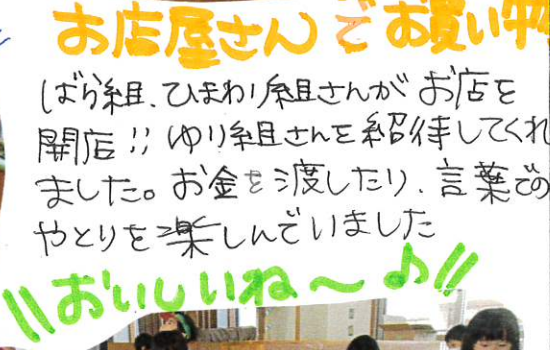 お店屋さんでお買い物
ばら組、ひまわり組さんがお店を
開店!! ゆり組さんを紹待してくれ
ました。お金を渡したり、言葉での
やとりを楽しんでいました
\\おいしいね〜♪//